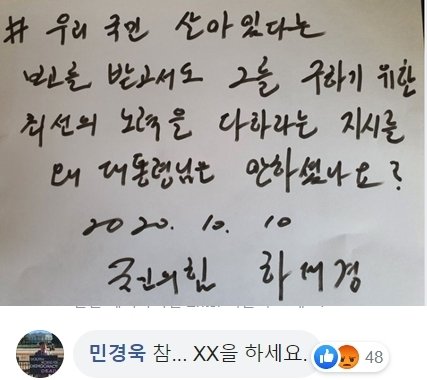 # 우리 국민 살아있다는
보고를 받고서도 그를 구하기 위한
최선의 노력을 다하라는 지시를
왜 대통령님은 안하셨나요?
2020. 10. 10
국민의힘 하세경
민경욱 참... XX을 하세요.
48